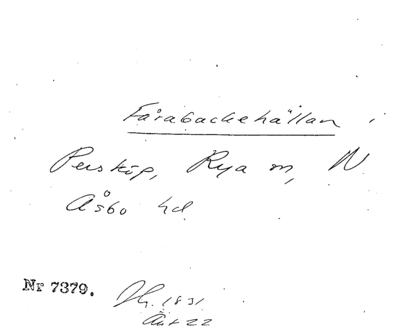 Fårabackehällan
Perstorp, Rya m, N
Åsbo hd
Nr 7379.
1831
22